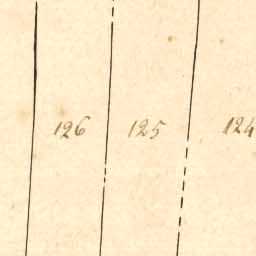 126 125 124